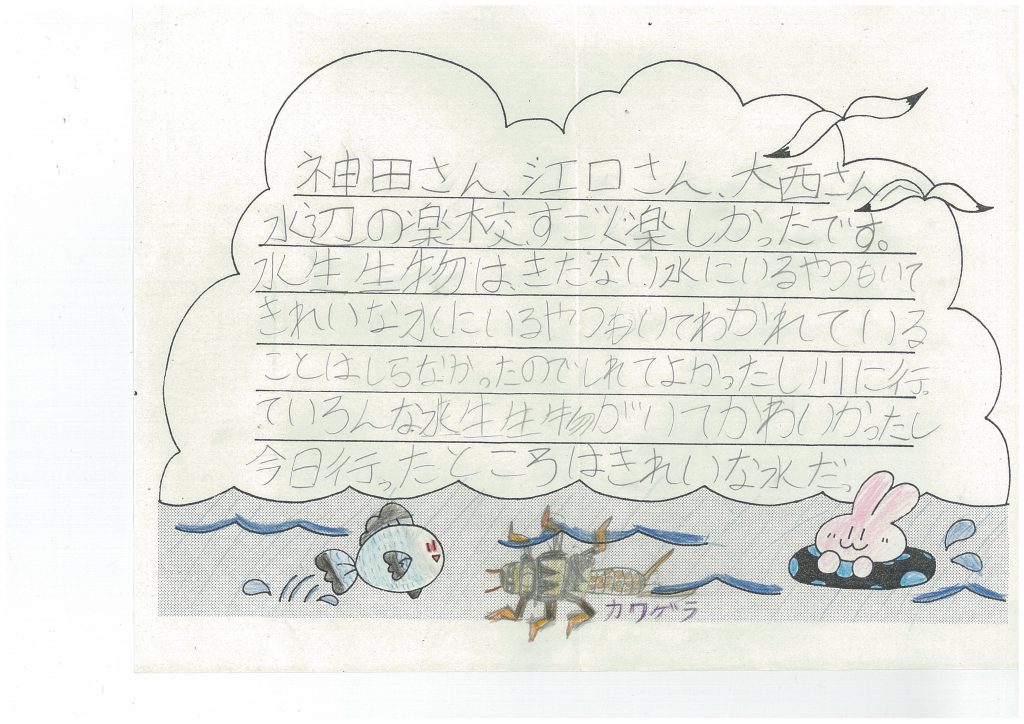 神田さん、江口さん、大西さん
水辺の楽校、すごく楽しかったです。
水生生物は、きたない水にいるやつもいて
きれいな水にいるやつもいてわかれている
ことはしらなかったのでしれてよかったし川に行っ
ていろんな水生生物がいてかわいかったし
今日行ったところはきれいな水だっ
カワゲラ